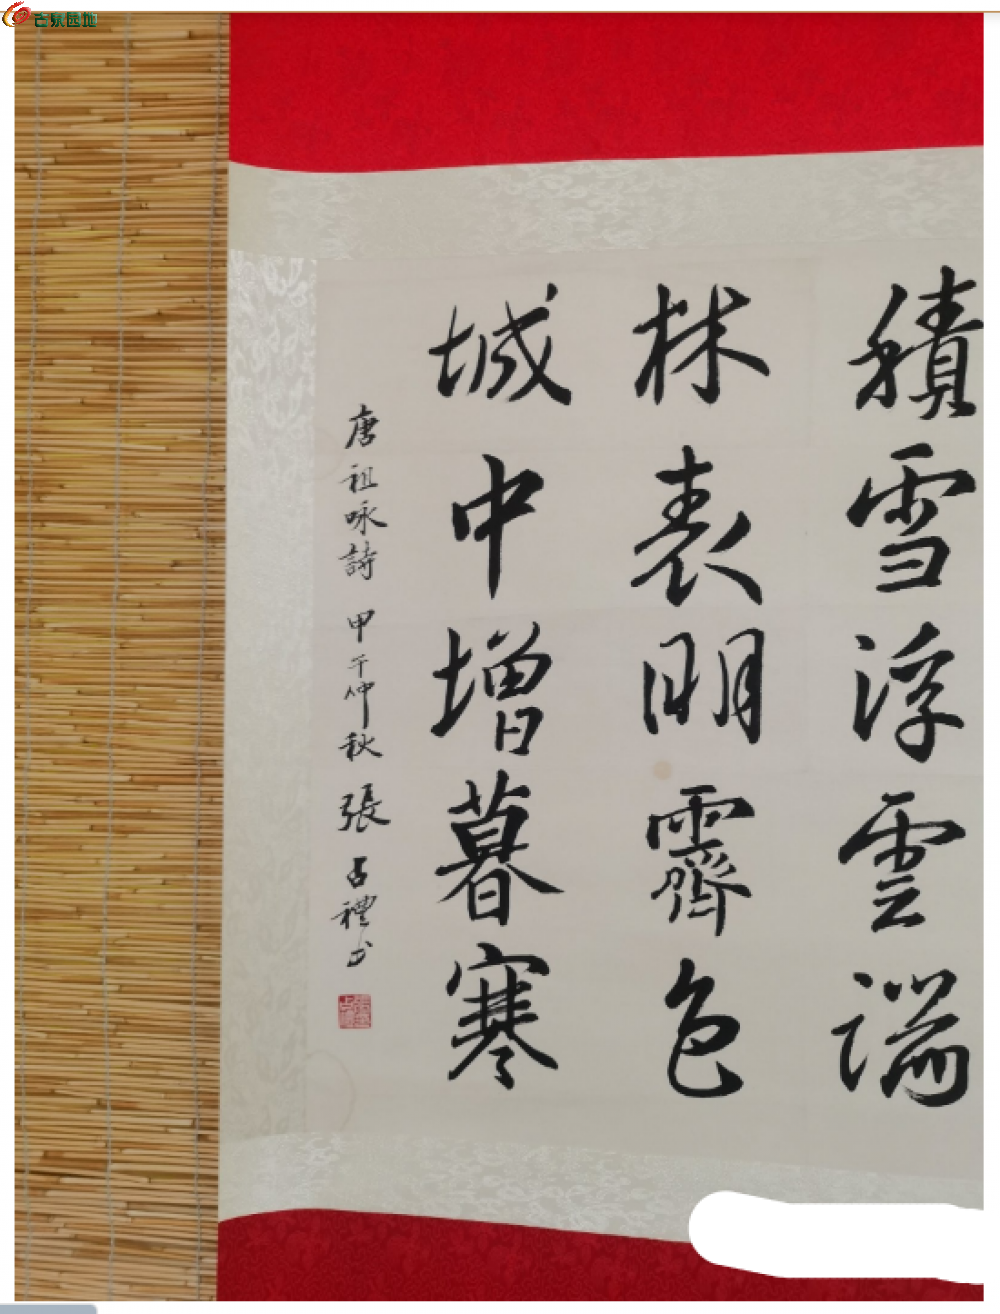 積雪浮雲端
林表明霽色
城中增暮寒
唐祖咏詩 甲午仲秋 張占禮书
古泉园地